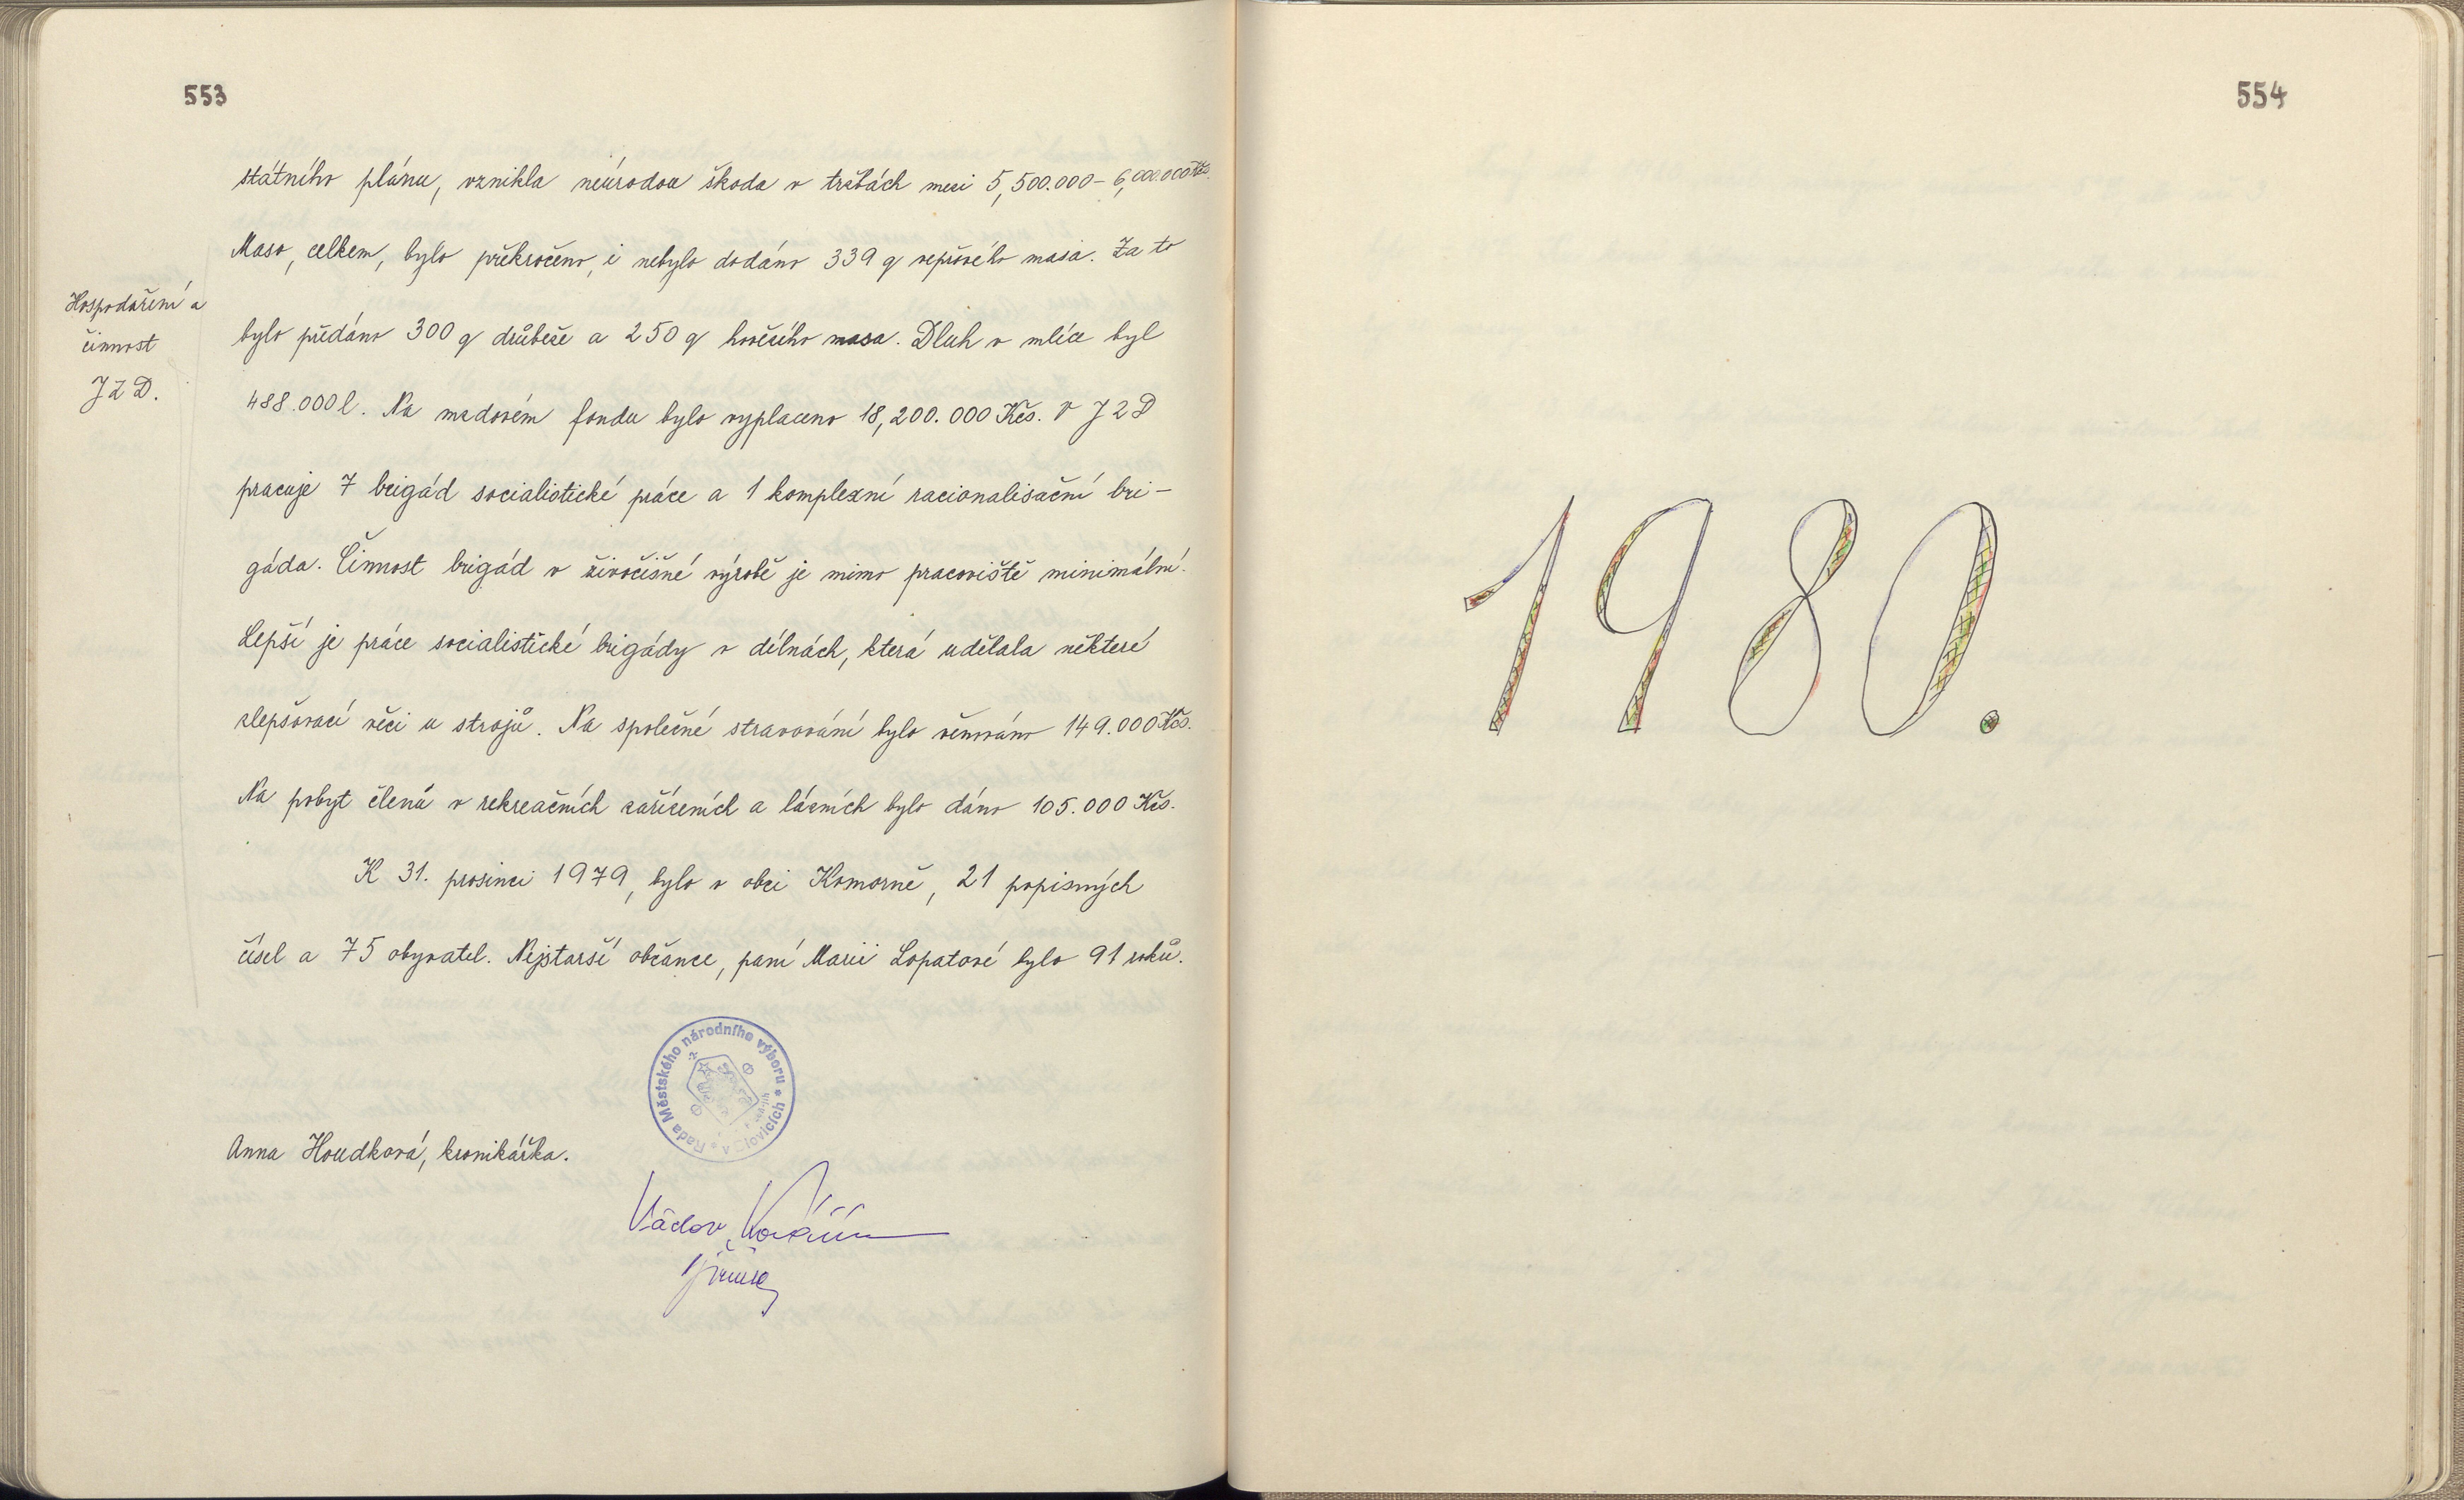 553
státního plánu, vznikla neúrodou škoda v tržbách mezi 5,500.000 – 6,000.000 Kčs.
Maso, celkem, bylo překročeno, i nebylo dodáno 339 q vepřového masa. Za to
Hospodaření a
činnost
JZD.
bylo předáno 300 q drůbeže a 250 q hovězího masa. Dluh v mléce byl
488.000 l. Na mzdovém fondu bylo vyplaceno 18,200.000 Kčs. V JZD
pracuje 7 brigád socialistické práce a 1 komplexní racionalisační bri-
gáda. Činnost brigád v živočišné výrobě je mimo pracoviště minimální.
Lepší je práce socialistické brigády v dílnách, která udělala některé
zlepšovací věci u strojů. Na společné stravování bylo věnováno 149.000 Kčs.
Na pobyt členů v rekreačních zařízeních a lázních bylo dáno 105.000 Kčs.
K 31. prosinci 1979, bylo v obci Komorně, 21 popisných
čísel a 75 obyvatel. Nejstarší občance, paní Marii Lopatové bylo 91 roků.
Rada Městského národního výboru * v Blovicích *
Anna Houdková, kronikářka.
Václav
554
1980.